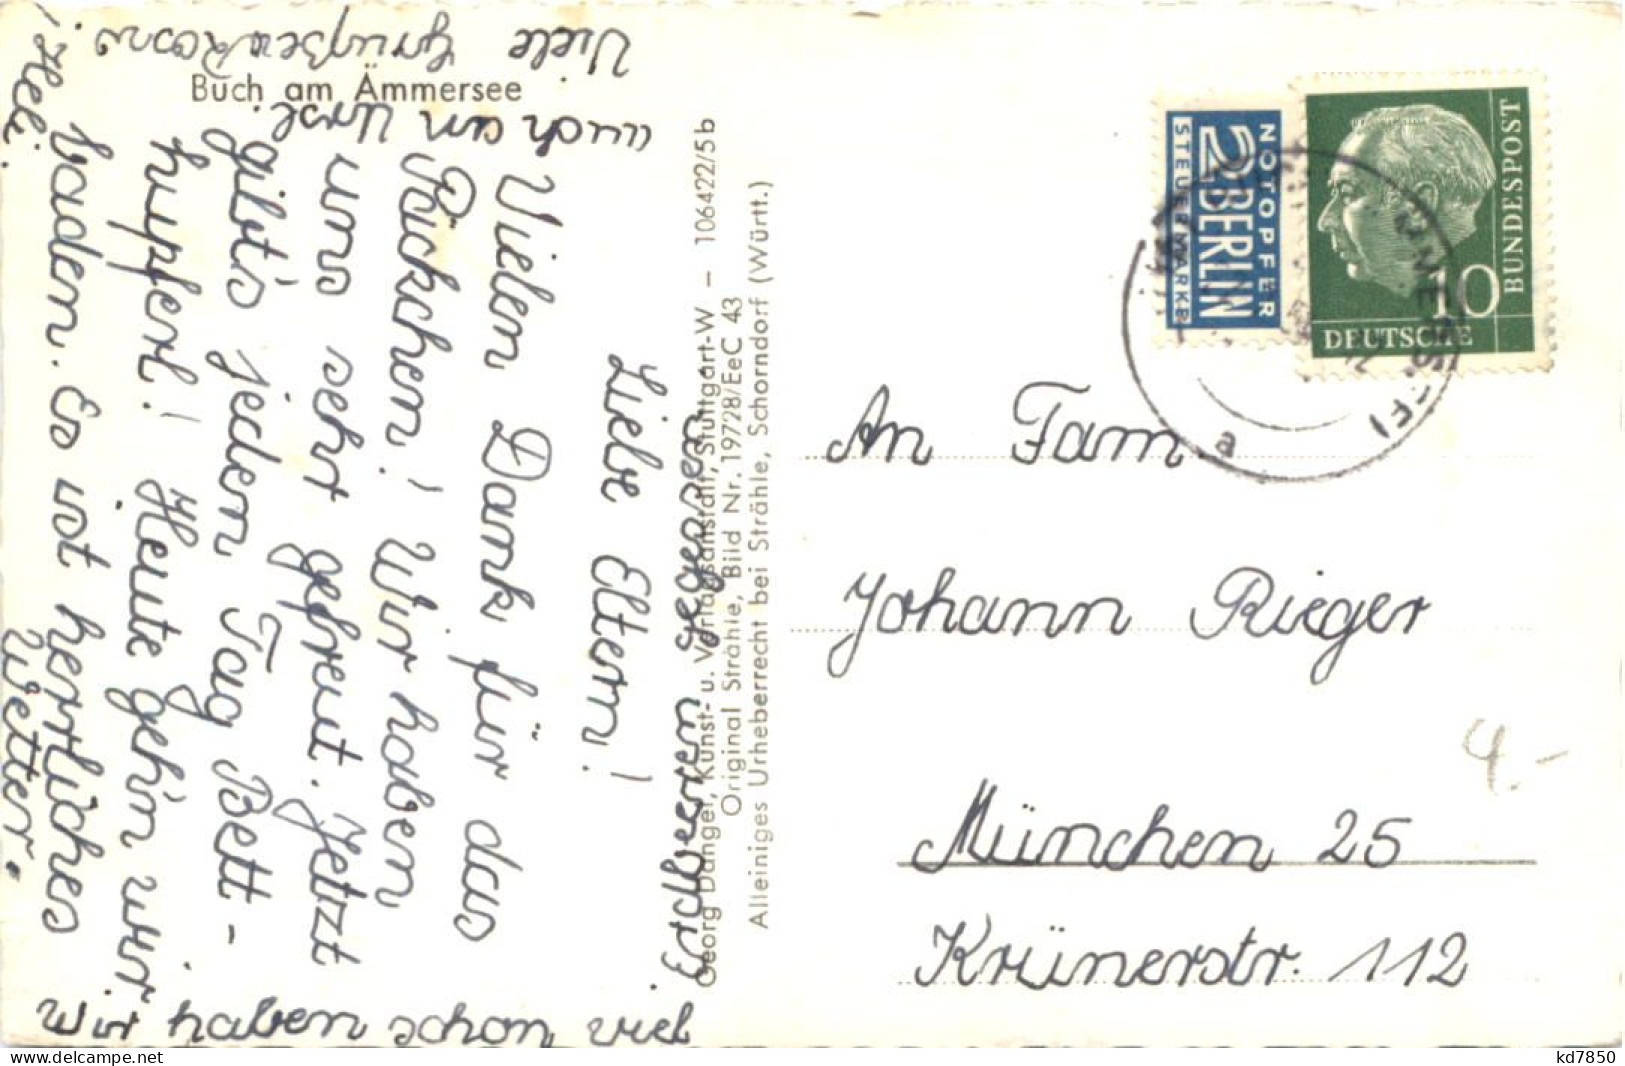 Buch am Ammersee
Liebe Eltern!
Vielen Dank für das
Päckchen! Wir haben
uns sehr gefreut. Jetzt
gibt's jeden Tag Bett-
hupferl! Heute geh'n wir
baden. Es ist herrliches
Wetter.
Wir haben schon viel
Erdbeeren gegessen.
Viele Grüße
auch an Ursl.
Heli.
Georg Dangel, Kunst- u. Verlagsanstalt, Stuttgart-W – 106422/5b
Original Strähle, Bild Nr. 19728/EeC 43
Alleiniges Urheberrecht bei Strähle, Schorndorf (Württ.)
NOTOPFER
2 BERLIN
STEUERMARKE
DEUTSCHE
BUNDESPOST
10
a
An Fam.
Johann Rieger
München 25
Krünerstr. 112
4.-
www.delcampe.net
kd7850